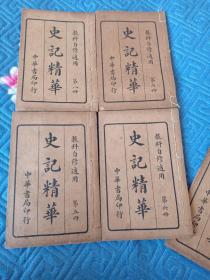 教科自修適用
史記精華 第八冊
中華書局印行
教科自修適用
史記精華
中華書局印行
教科自修適用
史記精華 第五冊
中華書局印行
教科自修適用
史記精華 第六冊
中華書局印行